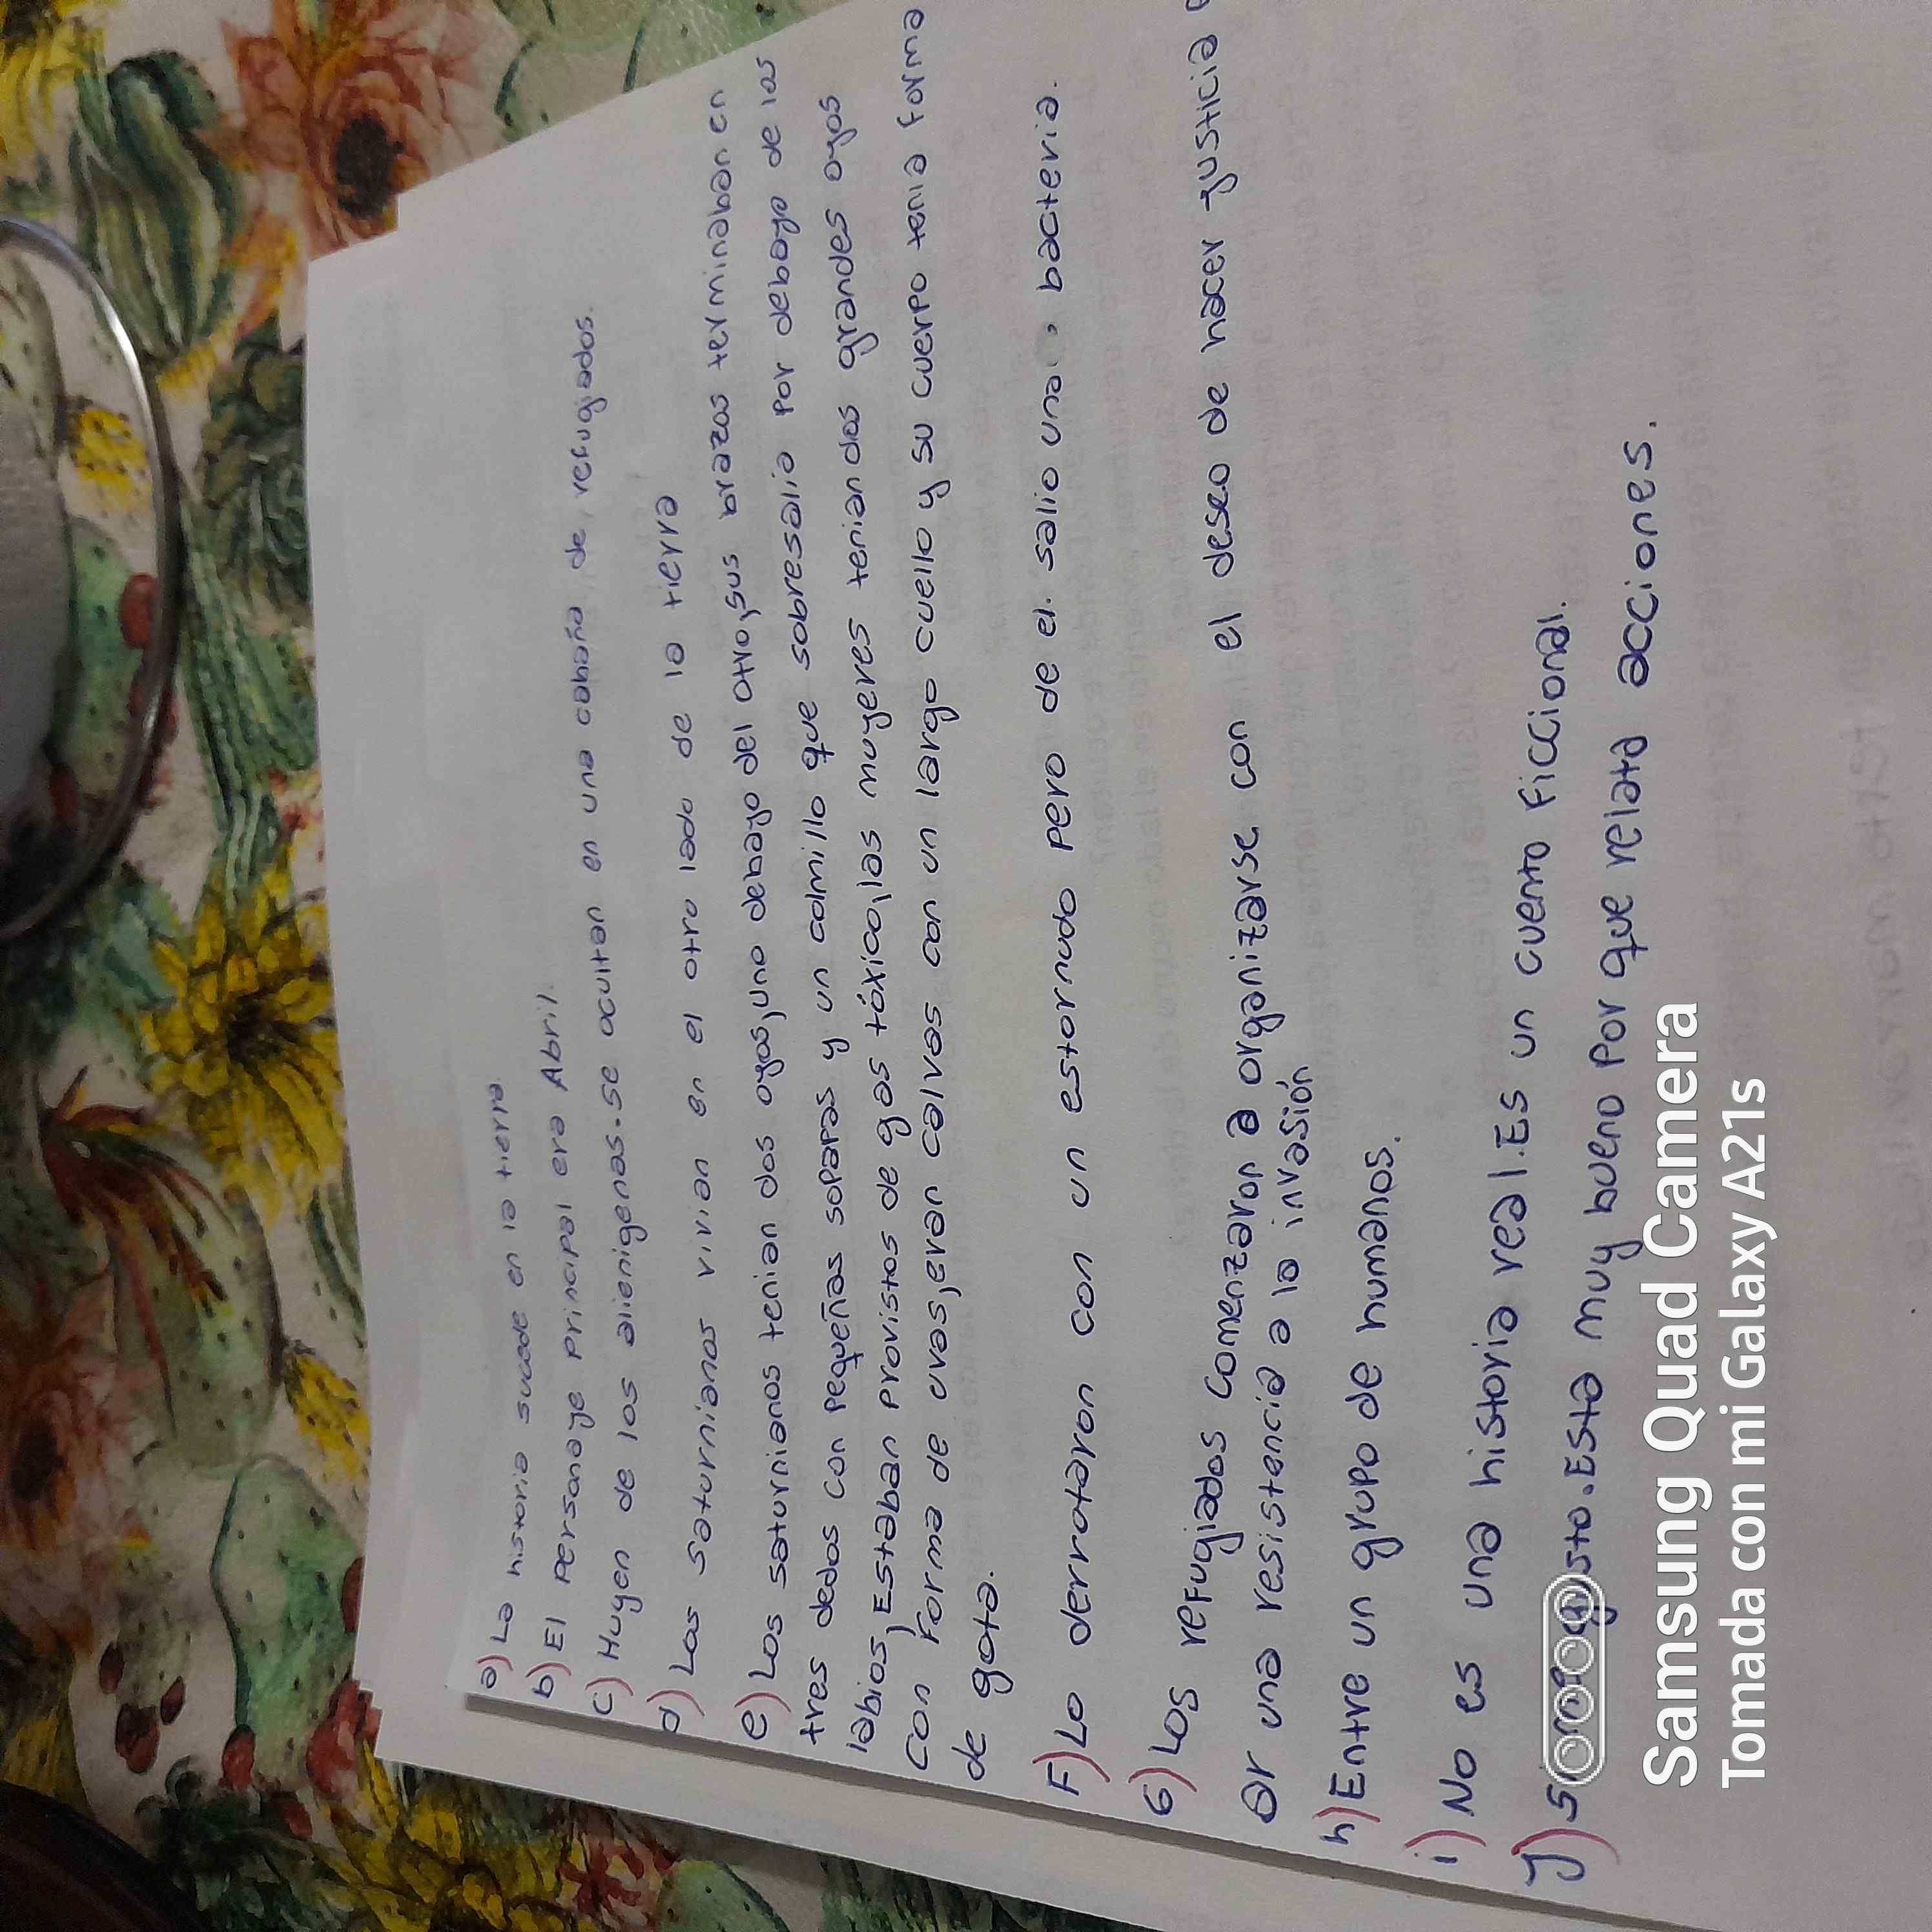 a) La historia sucede en la tierra.
b) El personaje principal era Abril.
c) Huyen de los alienigenas. se ocultan en una cabaña, de, refugiados.
d) Los saturnianos vivian en el otro lado de la tierra
e) Los saturnianos tenian dos ojos, uno debajo del otro, sus brazos terminaban en
tres dedos con pequeñas sopapas y un colmillo que sobresalia por debajo de los
labios, Estaban provistos de gas tóxico, las mujeres tenian dos grandes ojos
con forma de uvas, eran calvas con un largo cuello y su cuerpo tenia forma
de gota.
F) Lo derrotaron con un estornudo pero de el salio una, bacteria.
G) Los refugiados comenzaron a organizarse con el deseo de hacer justicia
ar una resistencia a la invasión
h) Entre un grupo de humanos.
i) No es una historia real. Es un cuento ficcional.
J) Si me gusto. Esta muy bueno por que relata acciones.
Samsung Quad Camera
Tomada con mi Galaxy A21s